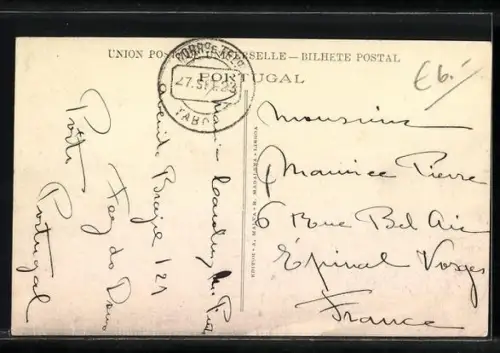 UNION POSTALE UNIVERSELLE — BILHETE POSTAL
PORTUGAL
27.SET.23
€6.-
Monsieur
Maurice Pierre
6 Rue Bel Air
Épinal Vosges
France
Maria
Avenida Brazil 121
Foz do Douro
Porto
Portugal